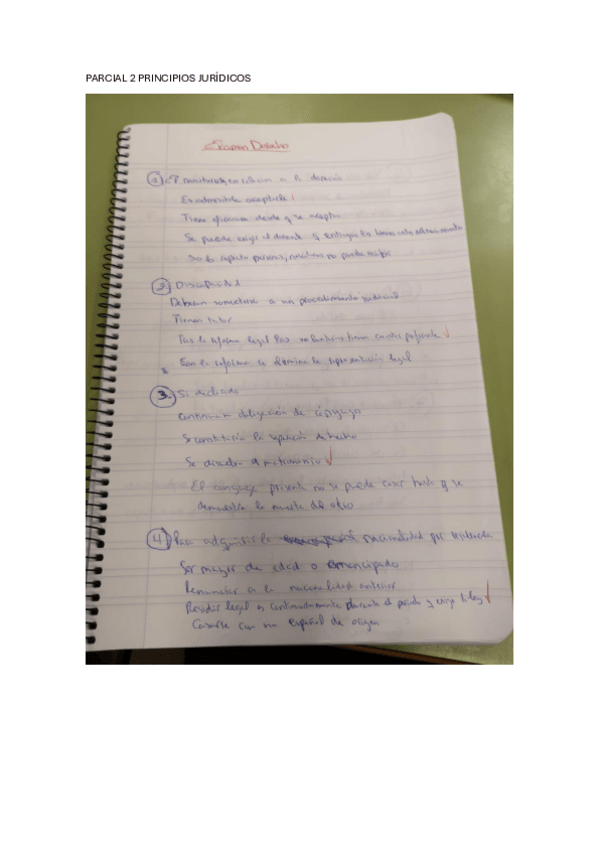 PARCIAL 2 PRINCIPIOS JURÍDICOS
Examen Derecho
1 en relación a la donación
Es admisible aceptarla
Tiene eficacia desde q se acepta
Se puede exigir al donante q entregue los bienes
Solo personas, no puede
2. Discapacidad
Deberán someterse a un procedimiento judicial
Tienen tutor
Tras la reforma legal las voluntarias tienen carácter preferente
Con la reforma se elimina la representación legal
3. Si declarado
Continúan obligación de cónyuge
Se constituiría la separación de hecho
Se disuelve el matrimonio
El conyuge presente no se puede casar hasta q se
demuestra la muerte del otro
4 Para adquirir la nacionalidad por residencia
Ser mayor de edad o emancipado
Renunciar a la nacionalidad anterior
Residir legal y continuadamente durante el periodo q exige la ley
Casarse con un español de origen